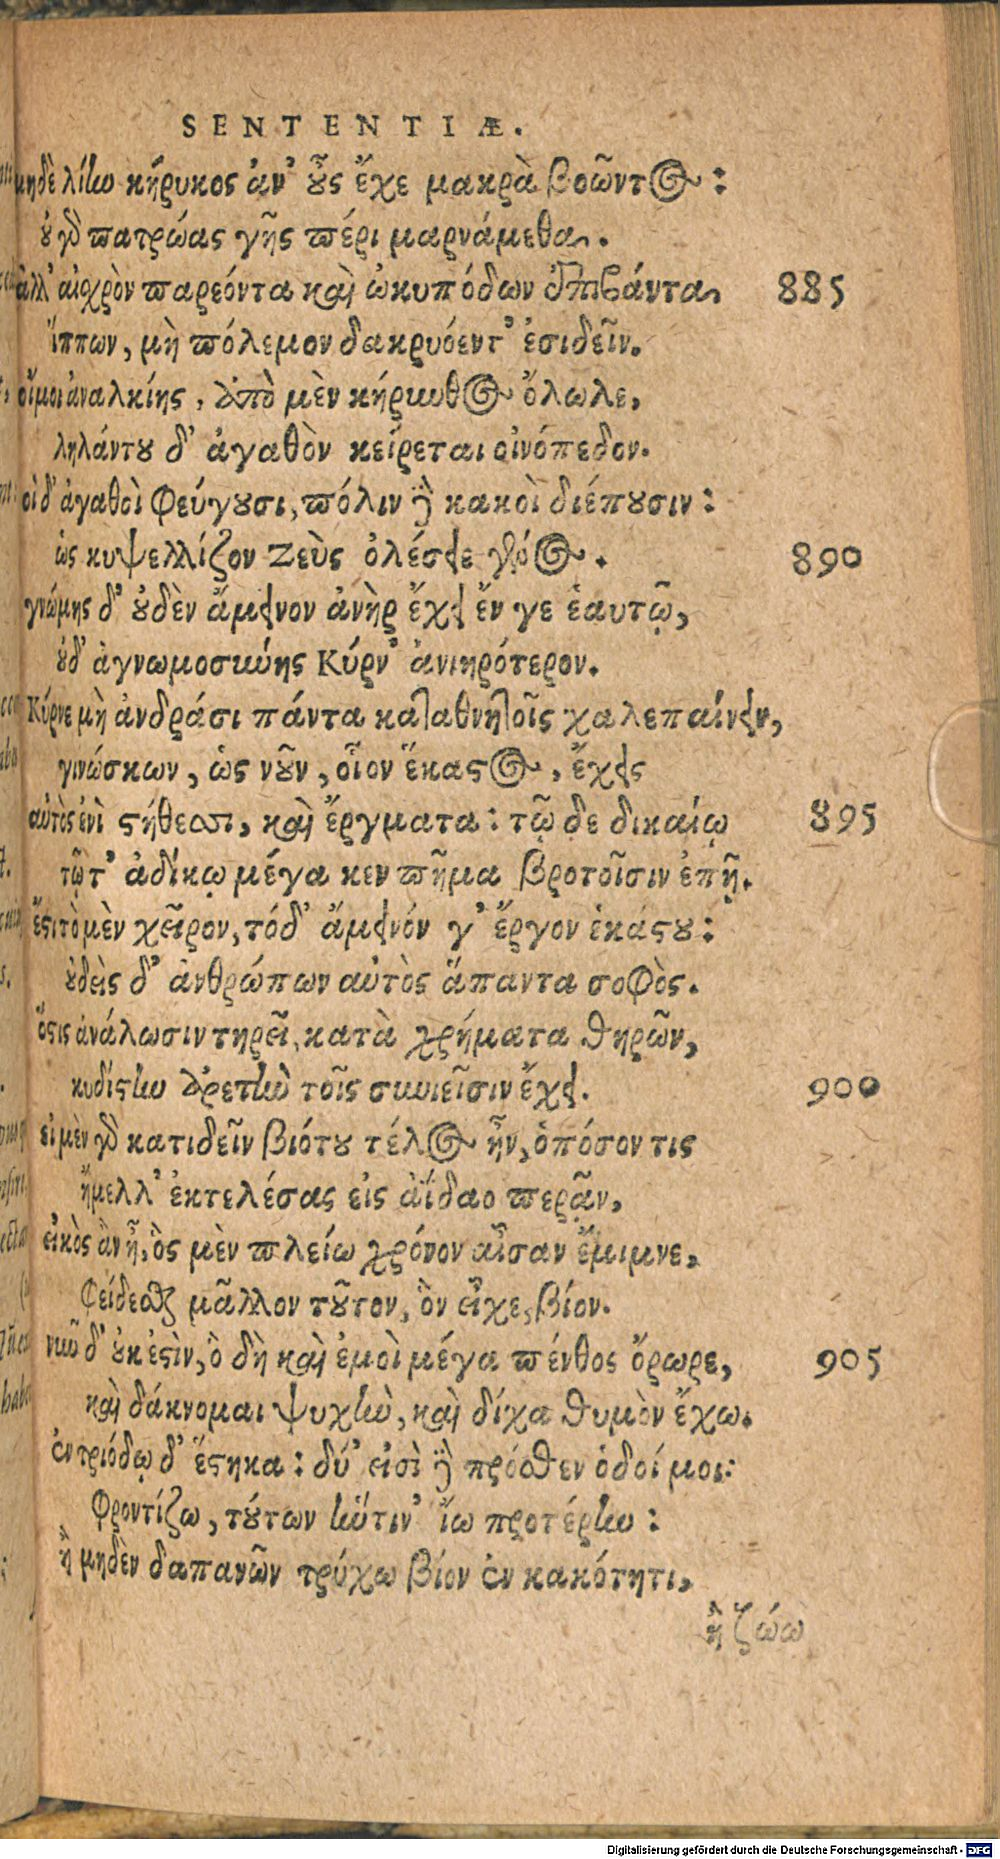 SENTENTIÆ.
μηδὲ λίην κήρυκος ἀν' οὖς ἔχε μακρὰ βοῶντος:
οὐ γὰρ πατρώας γῆς πέρι μαρνάμεθα.
ἀλλ' αἰσχρὸν παρεόντα καὶ ὠκυπόδων ἐπιβάντα 885
ἵππων, μὴ πόλεμον δακρυόεντ' ἐσιδεῖν.
οἴμοι ἀναλκίης, ἀπὸ μὲν κήρινθος ὄλωλε,
ληλάντου δ' ἀγαθὸν κείρεται οἰνόπεδον.
οἱ δ' ἀγαθοὶ φεύγουσι, πόλιν δὲ κακοὶ διέπουσιν:
ὡς κυψελλίζον Ζεὺς ὀλέσειε γένος. 890
γνώμης δ' οὐδὲν ἄμεινον ἀνὴρ ἔχει ἔν γε ἑαυτῷ,
οὐδ' ἀγνωμοσύνης Κύρν' ἀνιηρότερον.
Κύρνε μὴ ἀνδράσι πάντα καταθνητοῖς χαλεπαίνειν,
γινώσκων, ὡς νοῦν, οἷον ἕκαστος, ἔχεις
αὐτὸς ἐνὶ στήθεσσι, καὶ ἔργματα: τῷ δε δικαίῳ 895
τῷ τ' ἀδίκῳ μέγα κεν πῆμα βροτοῖσιν ἐπῇ.
ἔστι τὸ μὲν χεῖρον, τόδ' ἄμεινόν γ' ἔργον ἑκάστου:
οὐδεὶς δ' ἀνθρώπων αὐτὸς ἅπαντα σοφὸς.
ὅστις ἀνάλωσιν τηρεῖ, κατὰ χρήματα θηρῶν,
κυδίστην ἀρετὴν τοῖς συνιεῖσιν ἔχει. 900
εἰ μὲν γὰρ κατιδεῖν βιότου τέλος ἦν, ὁπόσον τις
ἤμελλ' ἐκτελέσας εἰς ἀΐδαο περᾷν,
εἰκὸς ἂν ἦ, ὃς μὲν πλείω χρόνον αἶσαν ἔμιμνε,
φείδεσθαι μᾶλλον τοῦτον, ὃν εἶχε, βίον.
νῦν δ' οὐκ ἐστὶν, ὃ δὴ καὶ ἐμοὶ μέγα πένθος ὄρωρε, 905
καὶ δάκνομαι ψυχὴν, καὶ δίχα θυμὸν ἔχω.
ἐν τριόδῳ δ' ἕστηκα: δύ' εἰσὶ δὲ πρόσθεν ὁδοί μοι:
φροντίζω, τούτων ἥντιν' ἴω προτέρην:
ἢ μηδὲν δαπανῶν τρύχω βίον ἐν κακότητι,
ἢ ζώω
Digitalisierung gefördert durch die Deutsche Forschungsgemeinschaft - DFG